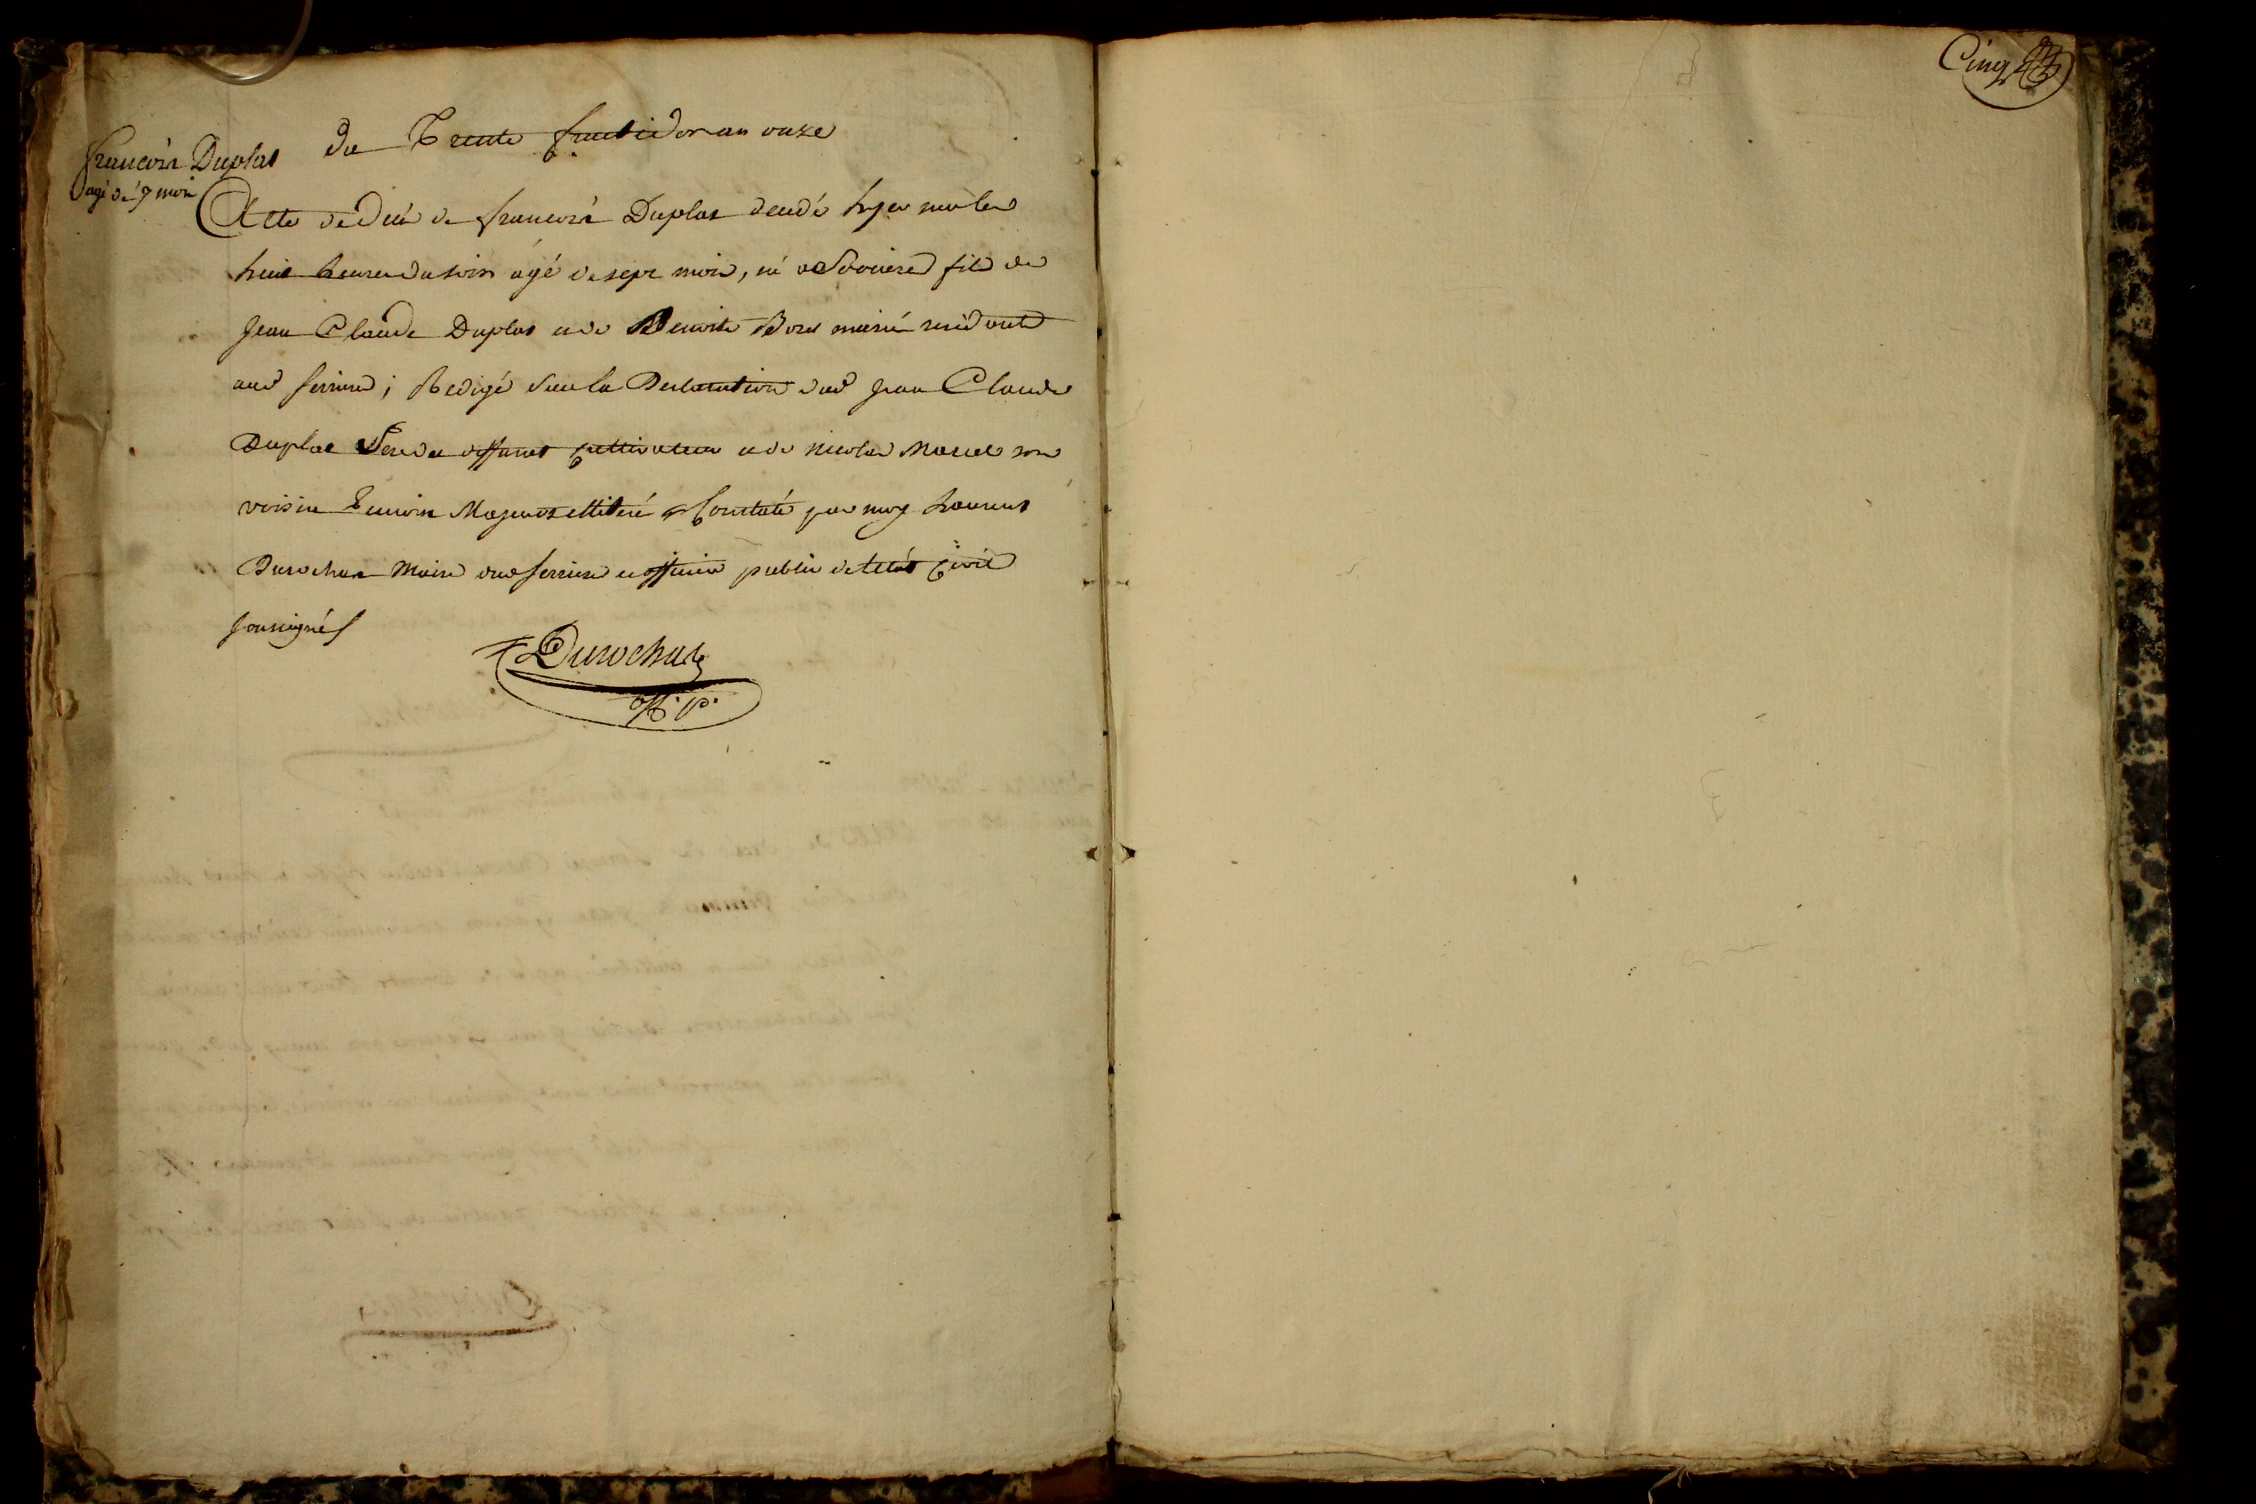 Cinq
Du Trente fructidor an onze
françois Duplat
agé de 7 mois
Acte de décè de françois Duplat decedé hyer sur les
huit heures du soir âgé de sept mois, né fils de
Jean Claude Duplat et de Benoite mariés residents
aud ferriere ; Redigé sur la Declaration dud Jean Claude
Duplat Pere du deffunt Cultivateur et de nicolas son
voisin Temoin Majeurs illiteré Constaté par moy Laurent
Durochat Maire dud ferriere et officier public de letat Civil
soussignés
Durochat
off. p.